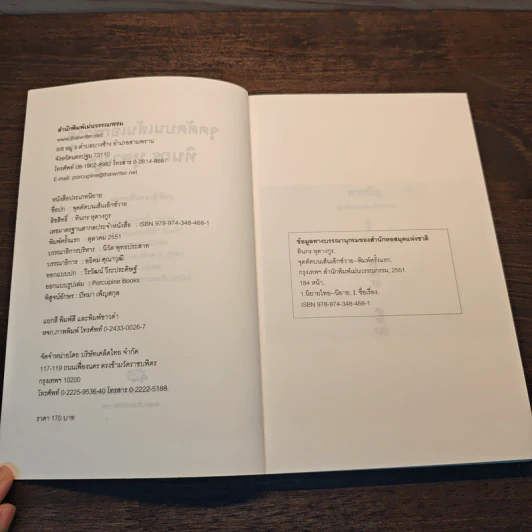 สำนักพิมพ์เม่นวรรณกรรม
www.thaiwriter.net
8/8 หมู่ 9 ตำบลบางช้าง อำเภอสามพราน
จังหวัดนครปฐม 73110
โทรศัพท์ 08-1902-8982 โทรสาร 0-2814-8887
E-mail: porcupine@thaiwriter.net
หนังสือประเภทนิยาย
ชื่อปก : จุดตัดบนเส้นเอ็กซ์วาย
ลิขสิทธิ์ : ทินกร หุตางกูร
เลขมาตรฐานสากลประจำหนังสือ : ISBN 978-974-348-468-1
พิมพ์ครั้งแรก : ตุลาคม 2551
บรรณาธิการบริหาร : นิวัต พุทธประสาท
บรรณาธิการ : อธิคม คุณาวุฒิ
ออกแบบปก : วีรวัฒน์ วีระประดิษฐ์
ออกแบบรูปเล่ม : Porcupine Books
พิสูจน์อักษร : ปัทมา เพ็ญสกุล
แยกสี พิมพ์สี และพิมพ์ขาวดำ
หจก.ภาพพิมพ์ โทรศัพท์ 0-2433-0026-7
จัดจำหน่ายโดย บริษัทเคล็ดไทย จำกัด
117-119 ถนนเฟื่องนคร ตรงข้ามวัดราชบพิตร
กรุงเทพฯ 10200
โทรศัพท์ 0-2225-9536-40 โทรสาร 0-2222-5188
ราคา 170 บาท
ข้อมูลทางบรรณานุกรมของสำนักหอสมุดแห่งชาติ
ทินกร หุตางกูร.
จุดตัดบนเส้นเอ็กซ์วาย--พิมพ์ครั้งแรก.
กรุงเทพฯ สำนักพิมพ์เม่นวรรณกรรม, 2551
184 หน้า.
1.นิยายไทย--นิยาย. I. ชื่อเรื่อง.
ISBN 978-974-348-468-1